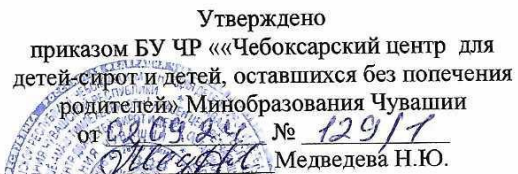 Утверждено
приказом БУ ЧР ««Чебоксарский центр для
детей-сирот и детей, оставшихся без попечения
родителей» Минобразования Чувашии
от 02.09.24 № 129/1
Медведева Н.Ю.